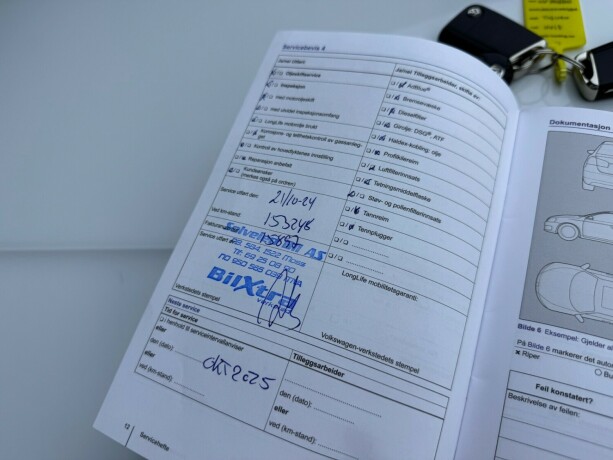 Servicebevis 4
Jamør Utført
Oljeskiftservice
Inspeksjon
med motoroljeskift
med utvidet inspeksjonsomfang
LongLife motorolje brukt
Kontroll av hovedlyktenes innstilling
Reparasjon anbefalt
Kundeønsker
(merkes også på ordren)
Tilleggsarbeider, skifte av:
AdBlue®
Bremsevæske
Dieselfilter
Girolje: DSG®, ATF
Haldex-kobling: olje
Profildybde
Luftfilterinnsats
Tetningsmiddelflaske
Støv- og pollenfilterinnsats
Tannreim
Tennplugger
Service utført den:
21/10-24
Ved km-stand:
153248
Fakturanummer:
Service utført av:
AS
1522 Moss
BilXtra
verksted
Verkstedets stempel
LongLife mobilitetsgaranti:
Volkswagen-verkstedets stempel
Neste service
Tid for service
I henhold til serviceintervallviser
eller
den (dato):
okt 2025
eller
ved (km-stand):
Tilleggsarbeider
den (dato):
eller
ved (km-stand):
12
Servicehefte
Dokumentasjon
Bilde 6 Eksempel: Gjelder
På Bilde 6 markerer det
Riper
Feil konstatert?
Beskrivelse av feilen: